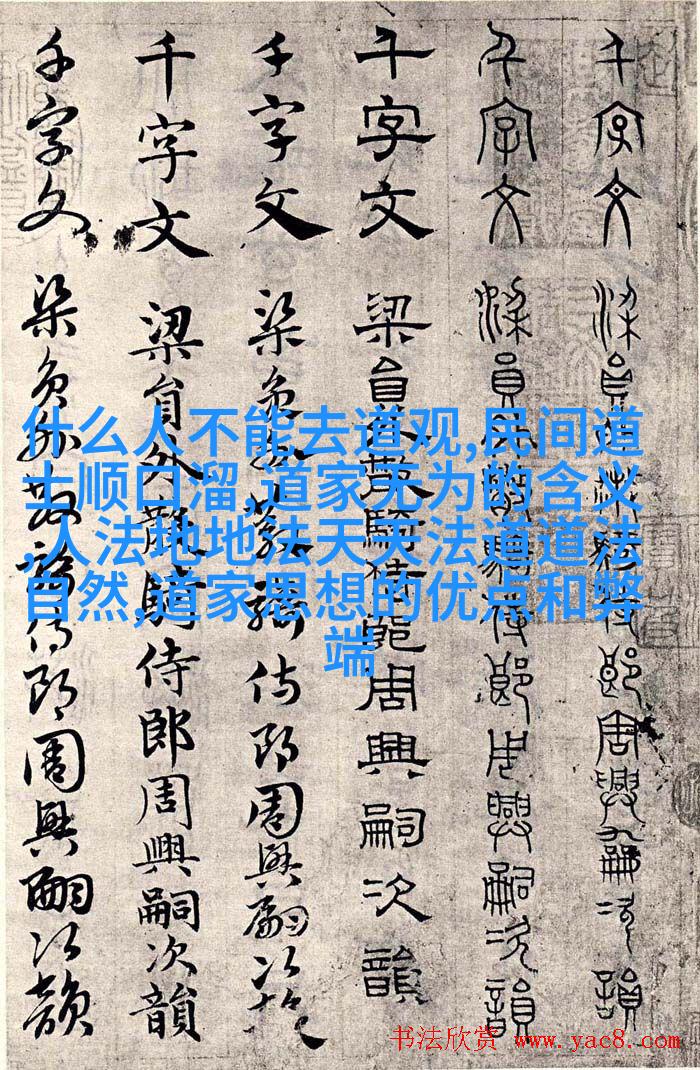 千字文梁員外散騎侍郎周興嗣次韻
千字文梁員外散騎侍郎周興嗣次韻
千字文梁員外散騎侍郎周興嗣次韻
千字文梁員外散騎侍郎周興嗣次韻
千字文梁員外散騎侍郎周興嗣次韻
千字文梁員外散騎侍郎周興嗣次韻
什么人不能去道观,民间道
士顺口溜,道家无为的含义
,人法地地法天天法道道法
自然,道家思想的优点和弊
端
书法欣赏 www.yac8.com